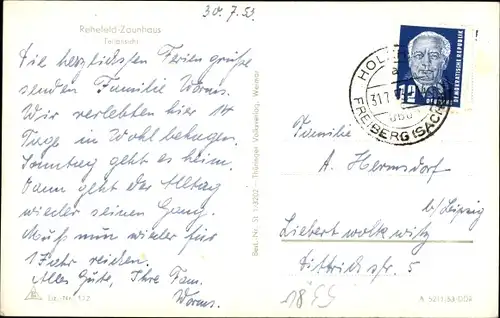 30.7.53
Rehefeld-Zaunhaus
Teilansicht
Die herzlichsten Feriengrüße
senden Familie Worms.
Wir verlebten hier 14
Tage in Wohlbehagen.
Sonntag geht es heim.
Dann geht der Alltag
wieder seinen Gang.
Muß nun wieder für
1 Jahr reichen.
Alles Gute, Ihre Fam.
Worms.
Best.-Nr. S1 1/3202 – Thüringer Volksverlag, Weimar
DEUTSCHE DEMOKRATISCHE REPUBLIK
12
31.7.
FREIBERG (SACHS)
Familie
A. Hermsdorf
b/ Leipzig
Liebertwolkwitz
Dittrichstr. 5
1855
A 521/53/DDR